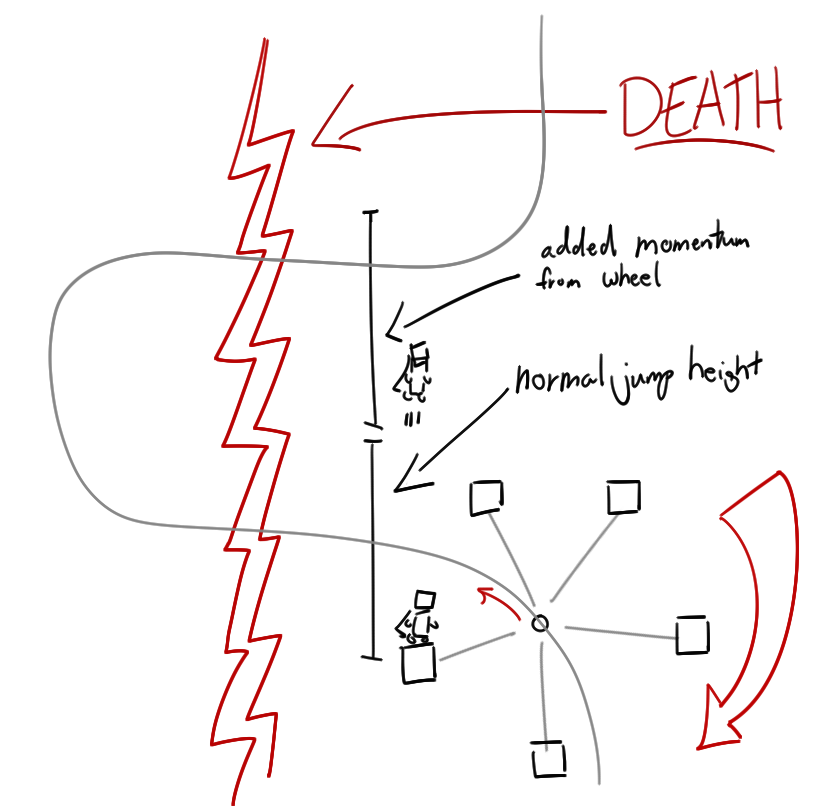 DEATH
added momentum
from wheel
normal jump height